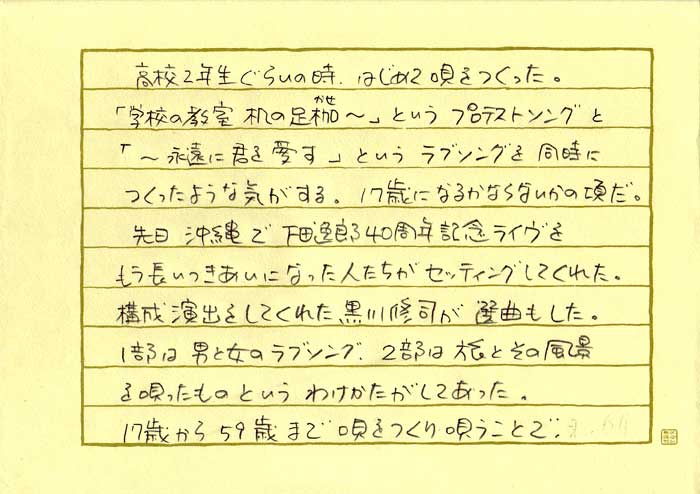 高校2年生ぐらいの時、はじめて唄をつくった。
「学校の教室 机の足枷〜」という プロテストソングと
かせ
「〜永遠に君を愛す」という ラブソングを 同時に
つくったような気がする。17歳になるかならないかの頃だ。
先日 沖縄で 下田逸郎40周年記念ライヴを
もう長いつきあいになった人たちが セッティングしてくれた。
構成演出をしてくれた 黒川修司が 選曲もした。
1部は 男と女のラブソング、2部は 旅とその風景
を唄ったもの という わけかたがしてあった。
17歳から 59歳まで 唄をつくり唄うことで、